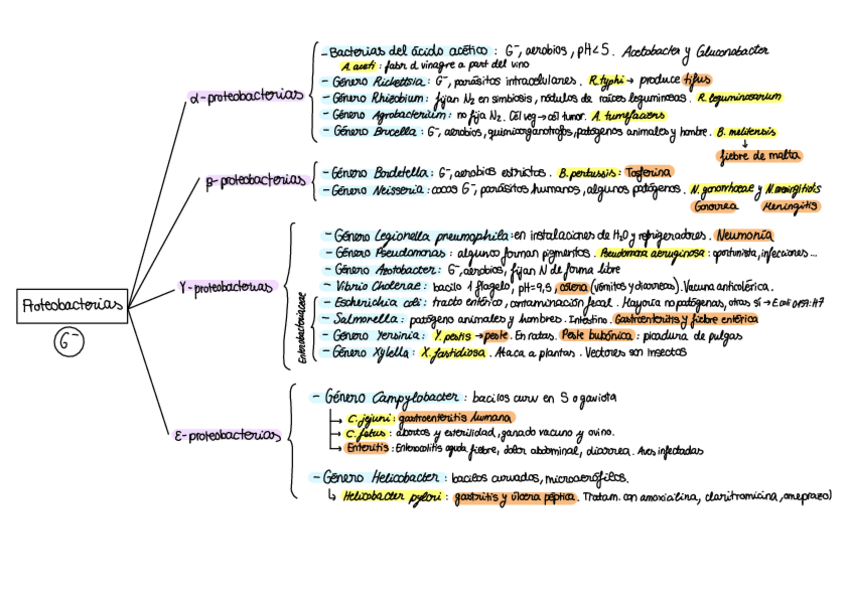 Proteobacterias
G⁻
α-proteobacterias
- Bacterias del ácido acético: G⁻, aerobios, pH<5. Acetobacter y Gluconobacter
A. aceti: fabr. d vinagre a part del vino
- Género Rickettsia: G⁻, parásitos intracelulares. R. typhi → produce tifus
- Género Rhizobium: fijan N₂ en simbiosis, nódulos de raíces leguminosas. R. leguminosarum
- Género Agrobacterium: no fija N₂. Cél veg → cél tumor. A. tumefaciens
- Género Brucella: G⁻, aerobios, quimiorganotrofos, patógenos animales y hombre. B. melitensis
↓
fiebre de malta
β-proteobacterias
- Género Bordetella: G⁻, aerobios estrictos. B. pertussis: Tosferina
- Género Neisseria: cocos G⁻, parásitos humanos, algunos patógenos. N. gonorrhoeae y N. meningitidis
Gonorrea Meningitis
γ-proteobacterias
- Género Legionella pneumophila: en instalaciones de H₂O y refrigeradores. Neumonía
- Género Pseudomonas: algunos forman pigmentos. Pseudomona aeruginosa: oportunista, infecciones...
- Género Azotobacter: G⁻, aerobios, fijan N de forma libre
- Vibrio Cholerae: bacilo 1 flagelo, pH=9,5, cólera (vómitos y diarreas). Vacuna anticolérica.
Enterobacteriaceae
- Escherichia coli: tracto entérico, contaminación fecal. Mayoría no patógenas, otras sí → E. coli O157:H7
- Salmonella: patógeno animales y hombres. Intestino. Gastroenteritis y fiebre entérica
- Género Yersinia: Y. pestis → peste. En ratas. Peste bubónica: picadura de pulgas
- Género Xylella: X. fastidiosa. Ataca a plantas. Vectores son insectos
ε-proteobacterias
- Género Campylobacter: bacilos curv en S o gaviota
→ C. jejuni: gastroenteritis humana
→ C. fetus: abortos y esterilidad, ganado vacuno y ovino.
→ Enteritis: Enterocolitis aguda fiebre, dolor abdominal, diarrea. Aves infectadas
- Género Helicobacter: bacilos curvados, microaerófilos.
↳ Helicobacter pylori: gastritis y úlcera péptica. Tratam. con amoxicilina, claritromicina, omeprazol